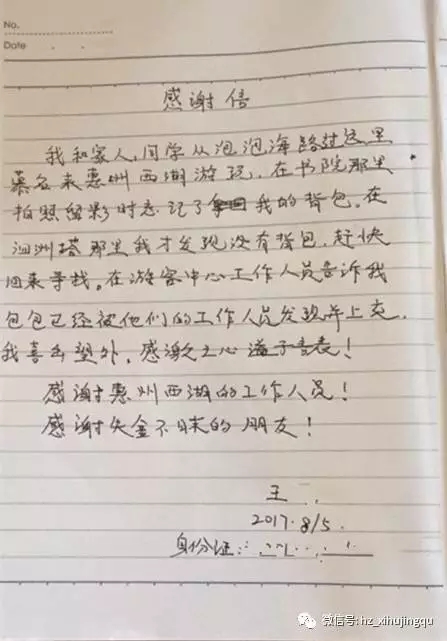 No.
Date
感谢信
我和家人、同学从泡泡海路过这里
慕名来惠州西湖游玩,在书院那里
拍照留影时忘记了我的背包。在
泗洲塔那里我才发现没有背包,赶快
回来寻找。在游客中心工作人员告诉我
包包已经被他们的工作人员发现并上交。
我喜出望外,感激之心溢于言表!
感谢惠州西湖的工作人员!
感谢失金不昧的朋友!
王
2017.8/5.
身份证:
微信号: hz_xihujingqu